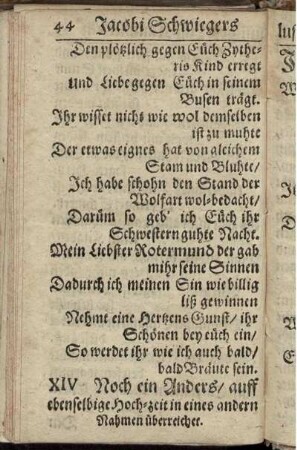 44 Jacobi Schwiegers
Den plötzlich gegen Eüch Zythe-
ris Kind erregt
und Liebe gegen Eüch in seinem
Busen trägt.
Ihr wisset nichs wie wol demselben
ist zu muhte
Der etwas eignes hat von gleichem
Stam und Bluhte/
Ich habe schohn den Stand der
Wolfart wol-bedacht/
Darüm so geb' ich Eüch ihr
Schwestern guhte Nacht.
Mein Liebster Rotermund der gab
mihr seine Sinnen
Dadurch ich meinen Sin wie billig
liß gewinnen
Nehmt eine Hertzens Gunst/ ihr
Schönen bey eüch ein/
So werdet ihr wie ich auch bald/
bald Bräute sein.
XIV Noch ein Anders/ auff
ebenselbige Hoch-zeit in eines andern
Nahmen überreichet.